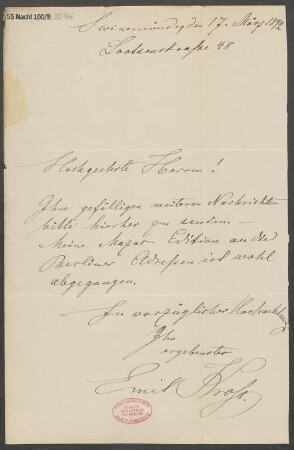 55 Nachl 100/B,
Swinemünde, den 17. März 1892
Lootsenstraße 48
Hochgeehrte Herren!
Ihre gefälligen weiteren Nachrichten
bitte hierher zu senden. –
Meine Mozart Edition an die
Berliner Adressen ist wohl
abgegangen.
In vorzüglicher Hochachtung
Ihr
ergebenster
Emil Kross.